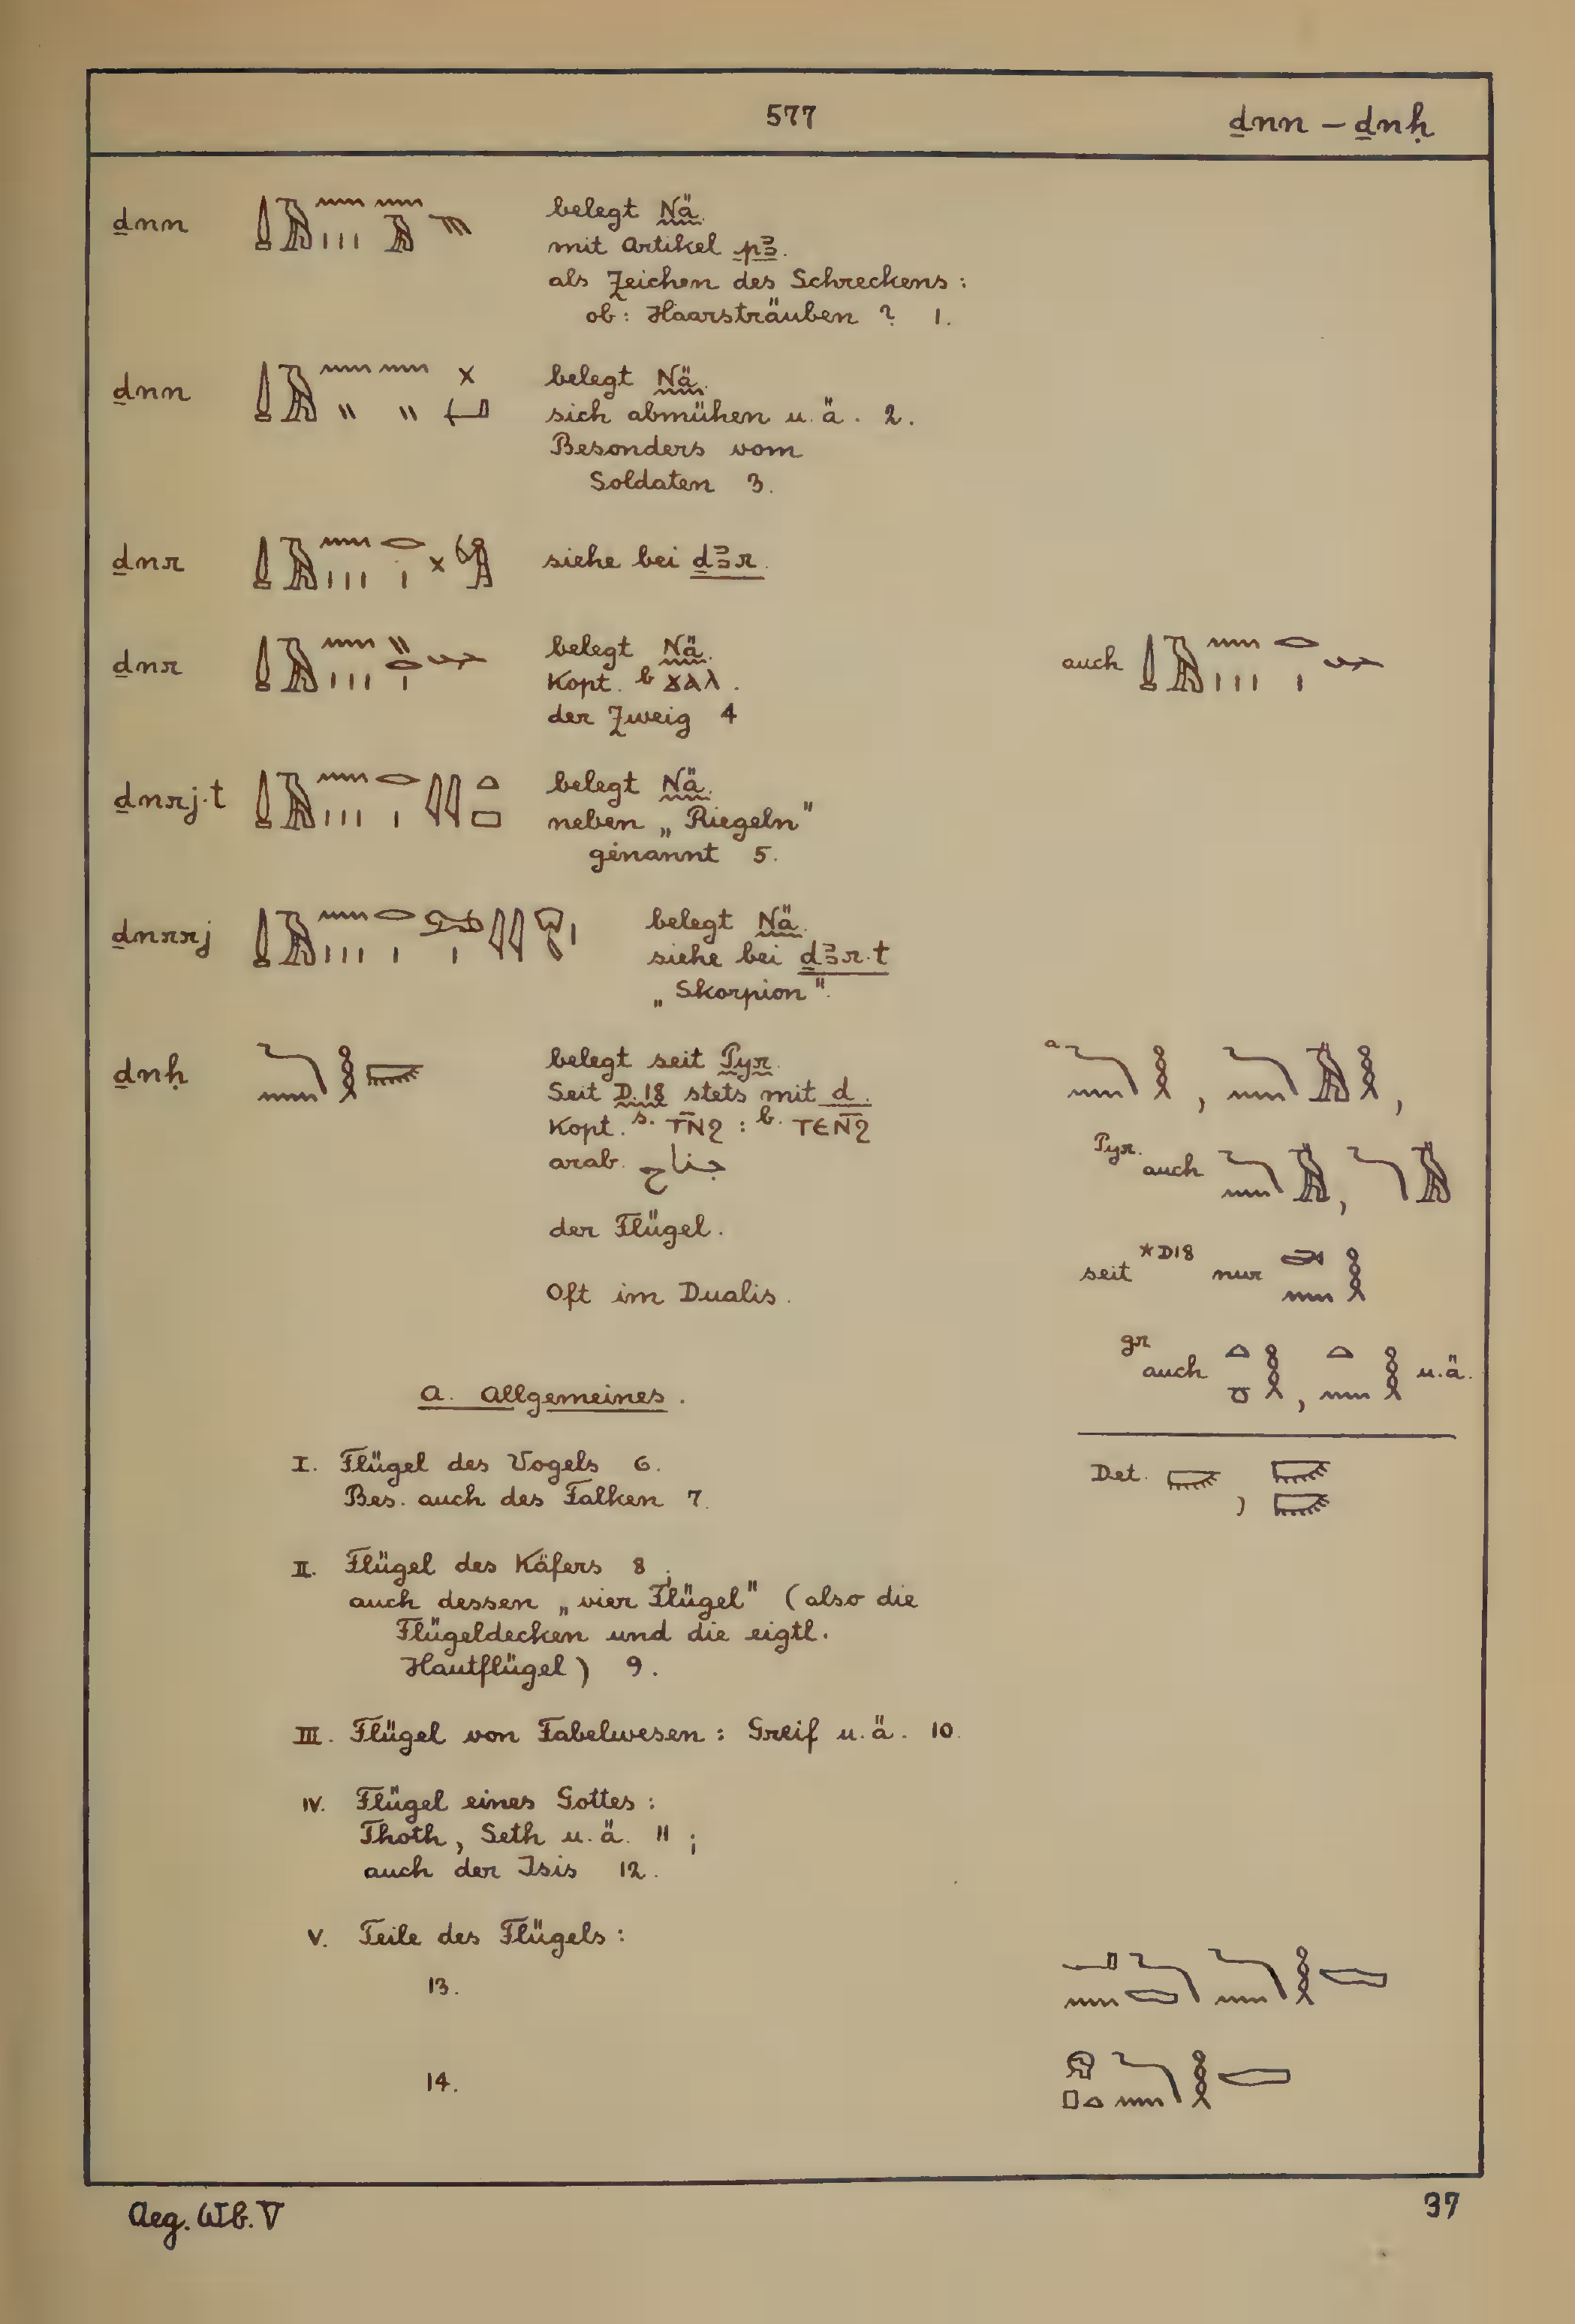 577
ḏnn – ḏnḥ
ḏnn belegt Nä.
mit Artikel pꜣ.
als Zeichen des Schreckens:
ob: Haarsträuben ? 1.
ḏnn belegt Nä.
sich abmühen u. ä. 2.
Besonders vom
Soldaten 3.
ḏnr siehe bei ḏꜣr.
ḏnr belegt Nä. auch
Kopt. b ϪⲀⲖ.
der Zweig 4
ḏnrj·t belegt Nä.
neben „Riegeln"
genannt 5.
ḏnrrj belegt Nä.
siehe bei ḏꜣr·t
„Skorpion".
ḏnḥ belegt seit Pyr. a
Seit D. 18 stets mit d.
Kopt. s. ⲦⲚ̄Ϩ : b. ⲦⲈⲚ̄Ϩ
arab. جناح
Pyr. auch
der Flügel.
seit *D18 nur
Oft im Dualis.
gr auch u. ä.
a. Allgemeines.
I. Flügel des Vogels 6.
Det.
Bes. auch des Falken 7.
II. Flügel des Käfers 8;
auch dessen „vier Flügel" (also die
Flügeldecken und die eigtl.
Hautflügel) 9.
III. Flügel von Fabelwesen: Greif u. ä. 10.
IV. Flügel eines Gottes:
Thoth, Seth u. ä. 11;
auch der Isis 12.
V. Teile des Flügels:
13.
14.
Aeg. Wb. V
37